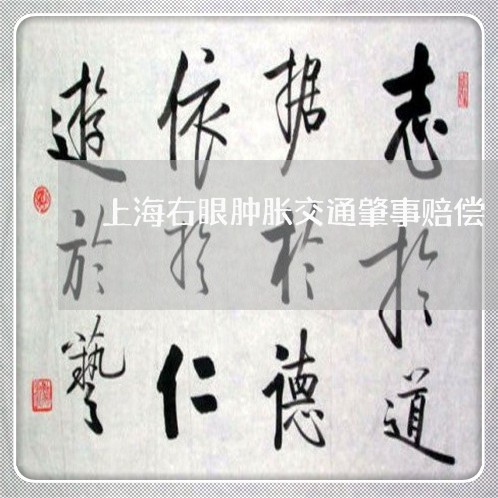 志於道
据於德
依於仁
遊於藝
上海右眼肿胀交通肇事赔偿